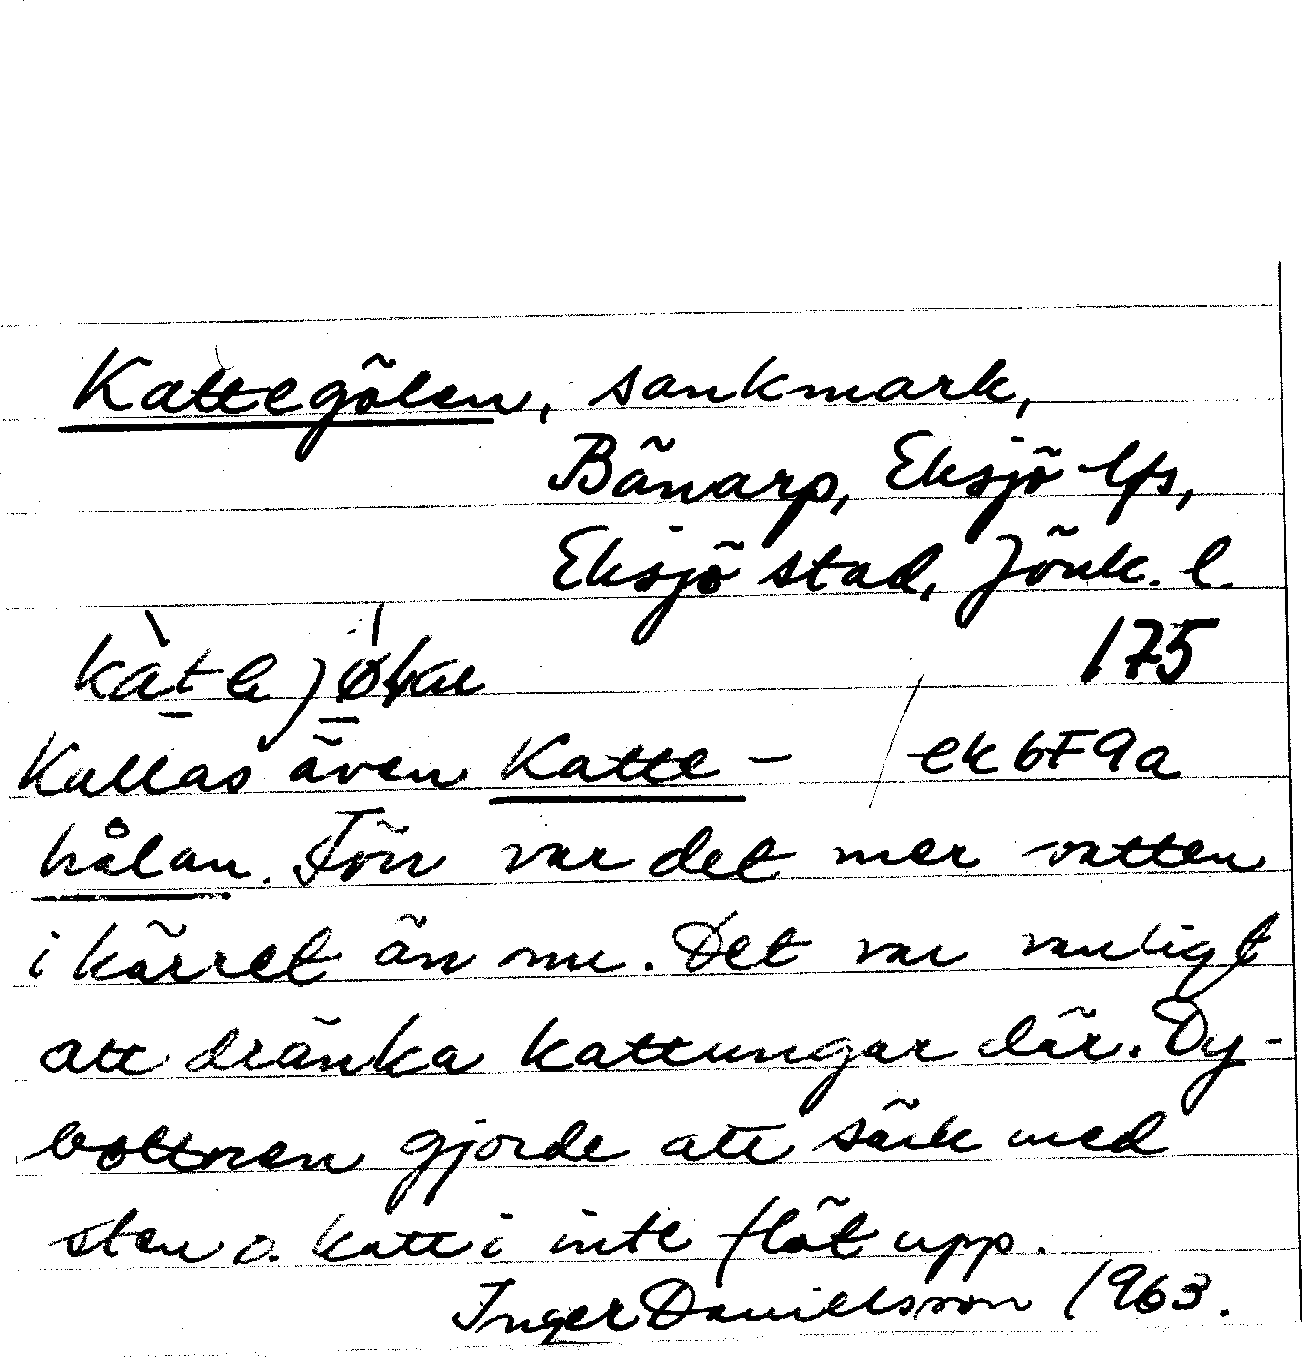 Kattegölen, sankmark,
Bänarp, Eksjö lfs,
Eksjö stad, Jönk. l.
175
Kallas även Katte- ek 6F9a
hålan. Förr var det mer vatten
i kärret än nu. Det var vanligt
att dränka kattungar där. Dy-
bottnen gjorde att säck med
sten o. katt i inte flöt upp.
Inger Danielsson 1963.